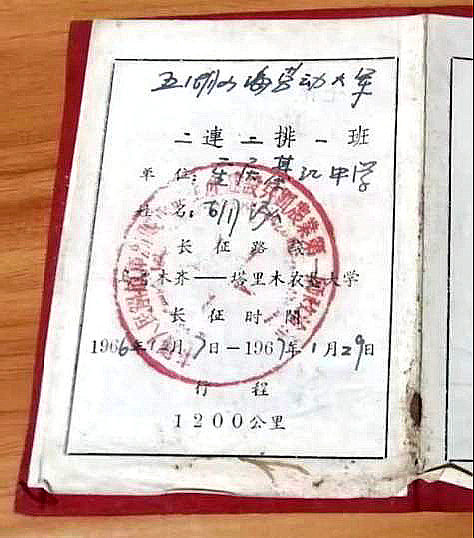 五湖四海劳动大军
二連二排一班
单位: 重庆第 中学
姓名:
长征路线
乌鲁木齐——塔里木农垦大学
长征时间
1966年12月7日-1967年1月29日
行程
1200公里